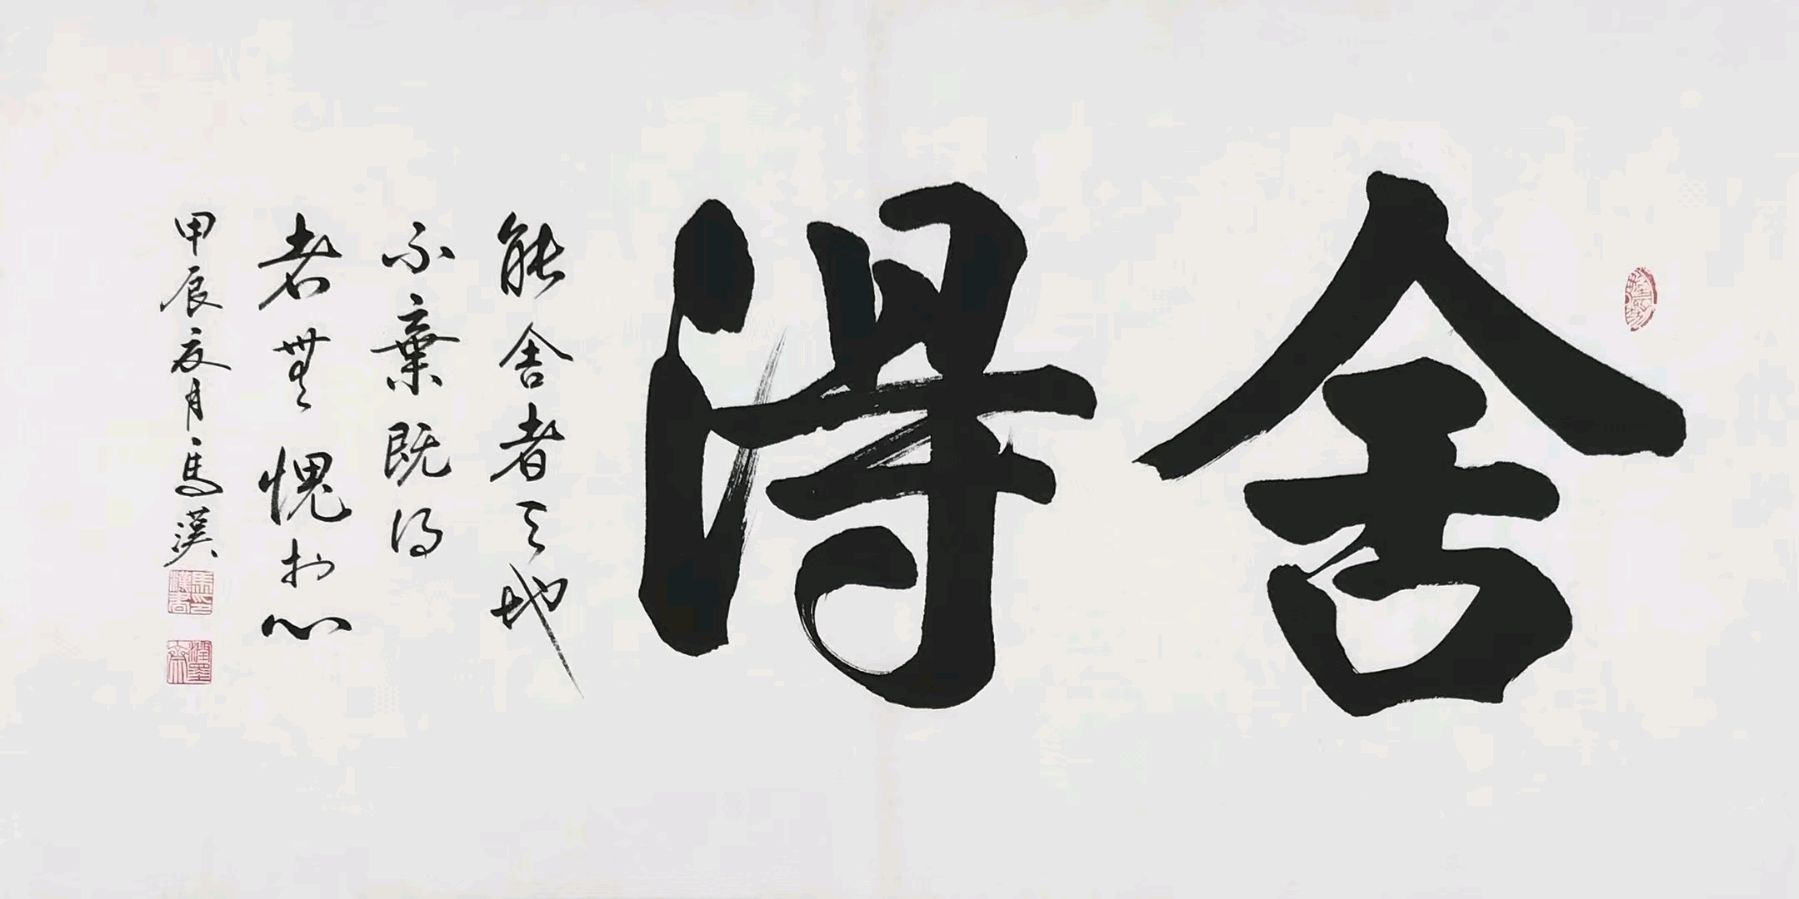 舍得
能舍者天地
不棄既得
者無愧於心
甲辰夏月馬漢